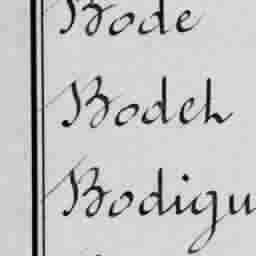 Bode
Bodeh
Bodigu